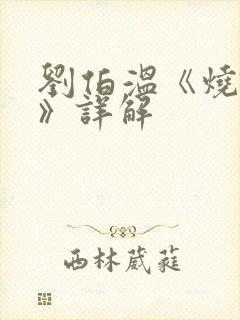 劉伯溫《燒
》詳解
西林葳蕤